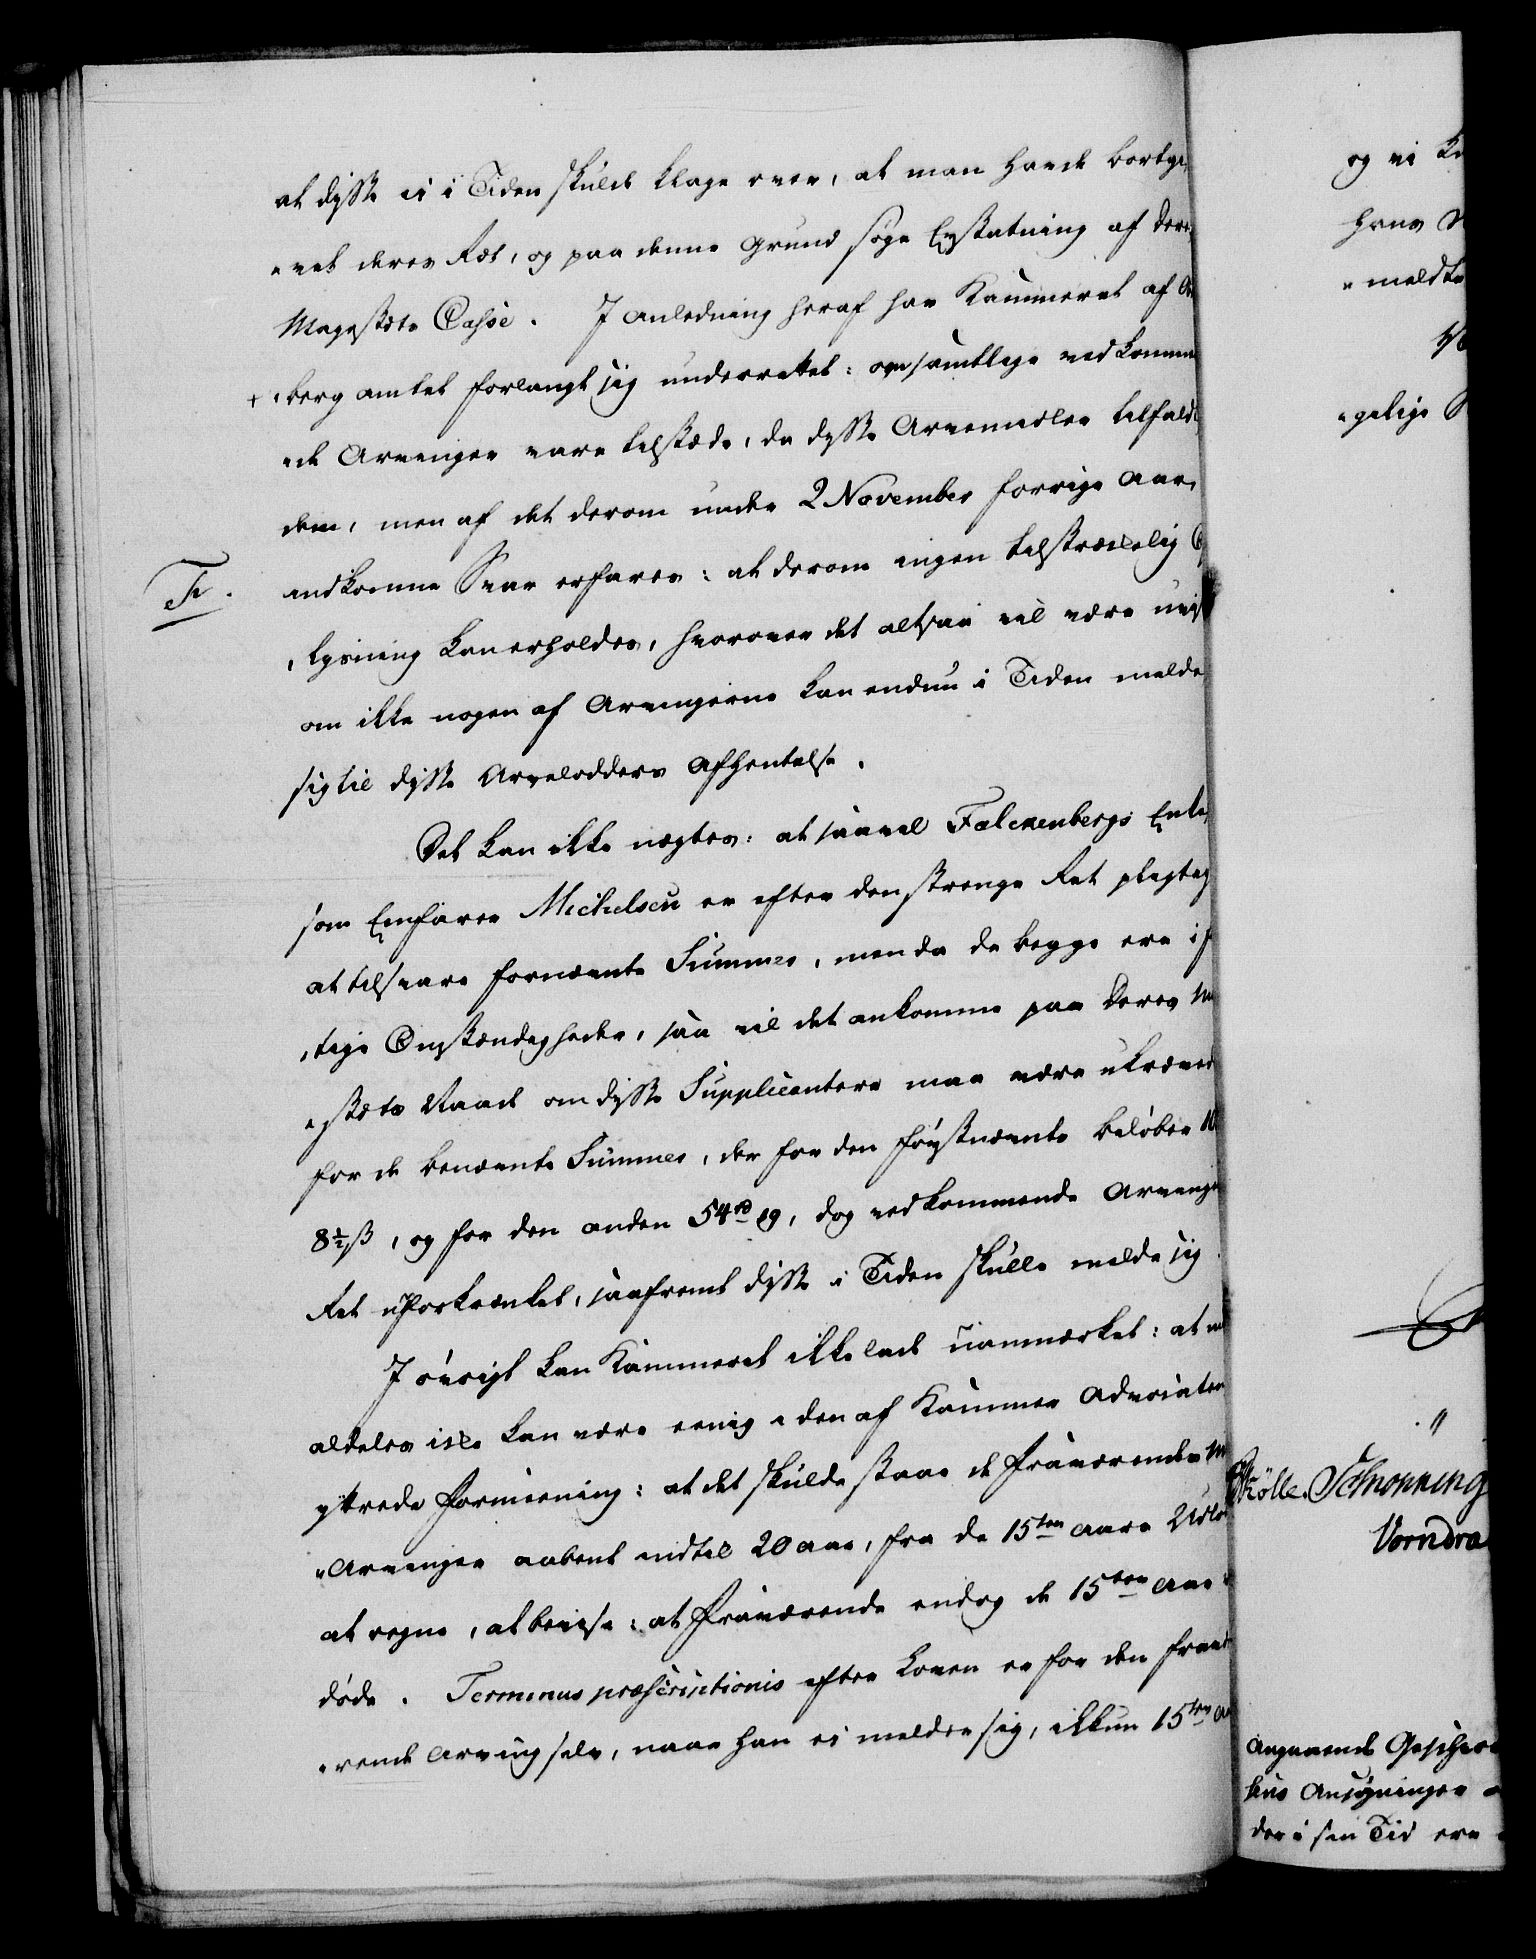 at disse ei i Tiden skulde klage over, at man havde bortgi-
-vet deres Ret, og paa denne Grund søge Erstatning af Deres
Mayestæts Casse. I Anledning heraf har Kammeret af
+ -berg amtet forlangt sig underrettet: om samtlige vedkommen
-de Arvinger vare tilstæde, da disse Arvemidler tilfaldt
dem, men af det derom under 2 November forrige Aar,
F. indkomne Svar erfares: at derom ingen tilstrækkelig
-lysning kan erholdes, hvorover det altsaa vil være uvist
om ikke nogen af Arvingerne kan endnu i Tiden melde
sig til disse Arvelodders Afhentelse.
Det kan ikke nægtes: at saavel Falckenbergs Enke,
som Einfarer Michelsen er efter den strenge Ret pligtig
at tilsvare fornævnte Summer, men da de begge ere i
-tige Omstændigheder, saa vil det ankomme paa Deres
-stæts Naade om disse Supplicantere maa være ukrævede
for de benævnte Summer, der for den førstnævnte beløber
8½ ß, og for den anden 54 rd 19, dog vedkommende Arvingers
Ret uforkrænket, saafremt disse i Tiden skulle melde sig.
I øvrigt kan Kammeret ikke lade uanmærket: at
aldeles ikke kan være eenig i den af Kammer Advocaten
yttrede Formeening: at det skulde staae de fraværendes
-Arvinger aabent indtil 20 aar, fra de 15ten Aars Udløb
at regne, at bevise: at fraværende endog de 15ten Aar
døde. Terminus præscriptionis efter Loven er for den fravæ-
-rende Arving selv, naar han ei melder sig, ikkun 15ten
og vi
hans
-meldte
-gelige
"
Schønning
Vorndra
Angaaende
hus Ansøgninger
der i sin Tid ere